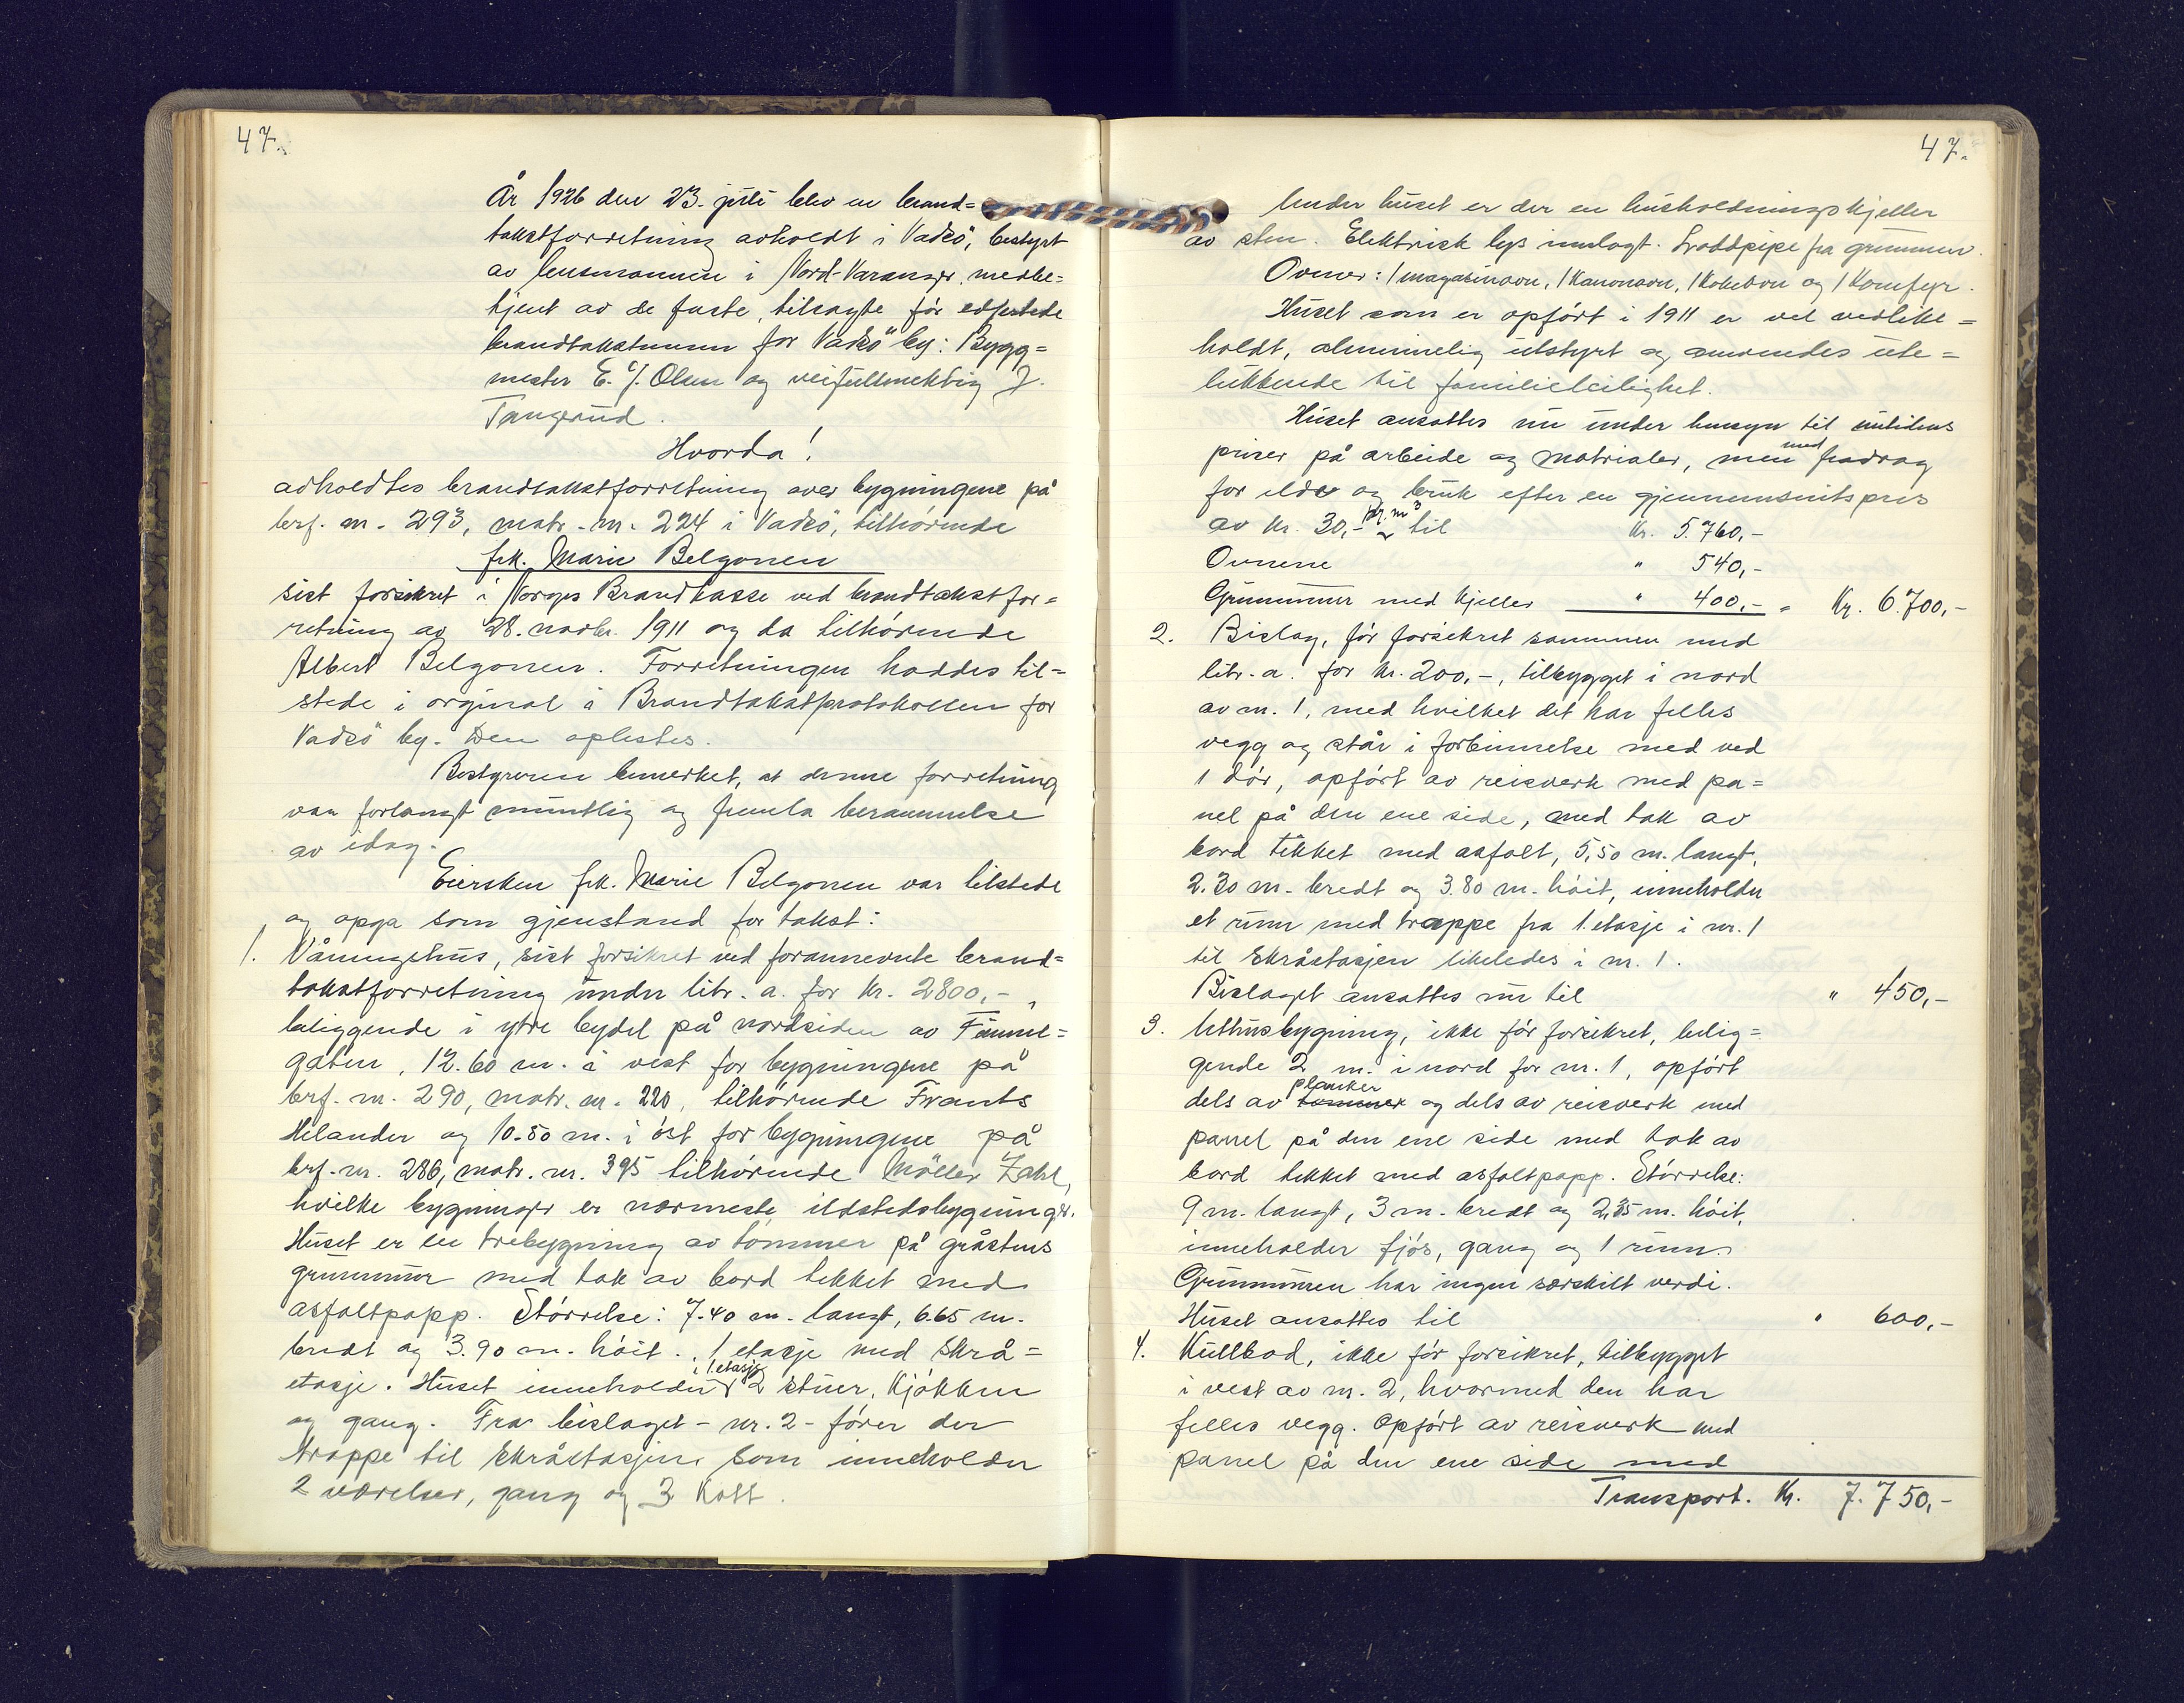 47.
År 1926 den 23. juli blev en brand=
takstforretning avholdt i Vadsö, bestyrt
av lensmannen i Nord-Varanger, medbe=
tjent av de faste, tilsagte før edfestede
brandtakstmenn for Vadsö by: Bygg=
mester E. J. Olsen og veifullmektig J.
Tangerud.
Hvorda!
avholdtes brandtakstforretning over bygningene på
brf. nr. 293, matr. nr. 224 i Vadsö, tilhørende
frk. Marie Belgonen
sist forsikret i Norges Brandkasse ved brandtakstfor=
retning av 28. novbr. 1911 og da tilhørende
Albert Belgonen. Forretningen haddes til=
stede i orginal i Brandtakstprotokollen for
Vadsö by. Den oplestes.
Bestyreren bemerket, at denne forretning
var forlangt muntlig og
av idag.
Eiersken frk. Marie Belgonen var tilstede
og opga som gjenstand for takst:
1. Våningshus, sist forsikret ved forannevnte brand=
takstforretning under litr. a. for kr. 2800,-,
beliggende i ytre bydel på nordsiden av
gaten, 12.60 m. i vest for bygningene på
brf. nr. 290, matr. nr. 220, tilhørende Frants
Helander og 10.80 m. i øst for bygningene på
brf. nr. 286, matr. nr. 395 tilhørende Möller Zahl,
hvilke bygninger er nærmeste ildstedsbygninger.
Huset er en trebygning av tömmer på gråstens
grunnmur med tak av bord tekket med
asfaltpapp. Størrelse: 7.40 m. langt, 6.65 m.
bredt og 3.90 m. høit. 1 etasje med skrå=
etasje. Huset inneholder i 1 etasje 2 stuer, kjøkken
og gang. Fra bislaget - nr. 2 - fører der
trappe til skråetasjen som inneholder
2 værelser, gang og 3 kott.
47.
Under huset er der en husholdningskjeller
av sten. Elektrisk lys innlagt. Loddpipe fra grunnen.
Ovner: 1 magasinovn, 1 Kanonovn, 1 Kokeovn og 1 Komfyr.
Huset som er opført i 1911 er vel vedlike=
holdt, almindelig utstyrt og anvendes ute=
lukkende til familieleilighet.
Huset ansattes nu under hensyn til nutidens
priser på arbeide og matrialer, men med fradrag
for elde og bruk efter en gjennemsnitspris
av kr. 30,- pr. m³ til Kr. 5.760,-
Ovnene " 540,-
Grunnmur med kjeller " 400,- = Kr. 6.700,-
2. Bislag, før forsikret sammen med
litr. a. for kr. 200,-, tilbygget i nord
av nr. 1, med hvilket det har felles
vegg og står i forbinnelse med ved
1 dør, opført av reisverk med pa=
nel på den ene side, med tak av
bord tekket med asfalt, 5,50 m. langt,
2.30 m. bredt og 3.80 m. høit, inneholder
et rum med trappe fra 1. etasje i nr. 1
til skråetasjen likeledes i nr. 1.
Bislaget ansattes nu til " 450,-
3. Uthusbygning, ikke før forsikret, belig=
gende 2 m. i nord for nr. 1, opført
dels av tömmer planker og dels av reisverk med
panel på den ene side med tak av
bord tekket med asfaltpapp. Størrelse:
9 m. langt, 3 m. bredt og 2,35 m. høit,
inneholder fjøs, gang og 1 rum.
Grunnmuren har ingen særskilt verdi.
Huset ansattes til " 600,-
4. Kullbod, ikke før forsikret, tilbygget
i vest av nr. 2, hvormed den har
felles vegg. Opført av reisverk med
panel på den ene side med
Transport. Kr. 7.750,-